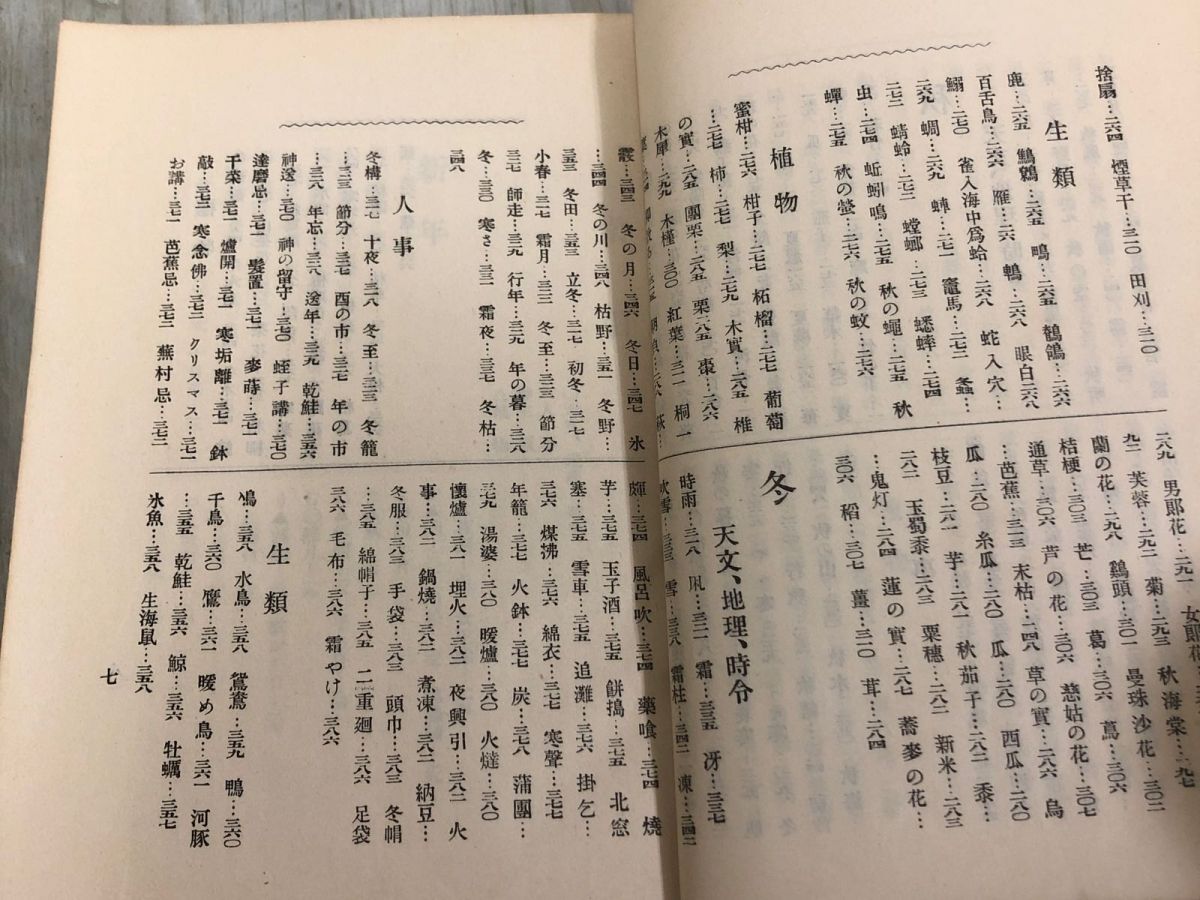 捨扇…二六四　煙草干…三一〇　田刈…三一〇
生類
鹿…二六五　鷦鷯…二六五　鴫…二六五　鶺鴒…二六六
百舌鳥…二六六　雁…二六　鵯…二六八　眼白二六八
鰯…二七〇　雀入海中爲蛤…二六八　蛇入穴…
二六九　蜩…二六九　蜻…二七一　竈馬…二七二　螽…
二七三　蜻蛉…二七二　螳螂…二七三　蟋蟀…二七四
虫…二七四　蚯蚓鳴…二七五　秋の蠅…二七五　秋
蟬…二七五　秋の螢…二七六　秋の蚊…二七六
植物
蜜柑…二七六　柑子…二七七　柘榴…二七七　葡萄
…二七七　柿…二七七　梨…二七九　木實…二八五　椎
の實…二八五　團栗…二八五　栗二八五　棗…二八六
木犀…二九九　木槿…三〇〇　紅葉…三一一　桐一
二八九　男郎花…二九一　女郎花
九二　芙蓉…二九二　菊…二九三　秋海棠…二九七
蘭の花…二九八　鷄頭…三〇一　曼珠沙花…三〇二
桔梗…三〇三　芒…三〇三　葛…三〇六　蔦…三〇六
通草…三〇六　芦の花…三〇六　慈姑の花…三〇七
…芭蕉…三一三　末枯…二四八　草の實…二八六　烏
瓜…二八〇　糸瓜…二八〇　瓜…二八〇　西瓜…二八〇
枝豆…二八一　芋…二八一　秋茄子…二八二　黍…
二八二　玉蜀黍…二八三　粟穂…二八二　新米…二八三
…鬼灯…二八四　蓮の實…二八七　蕎麥の花…
三〇六　稻…三〇七　薑…三一〇　茸…二八四
冬
天文、地理、時令
時雨…三二八　凩…三三一　霜…三三五　冴…三三七
吹雪…三三三　雪…三三八　霜柱…三四二　凍…三四二
霰…三四三　冬の月…三四六　冬日…三四七　氷
…三四四　冬の川…三四八　枯野…三五一　冬野…
三五三　冬田…三五三　立冬…三一七　初冬…三一七
小春…三一七　霜月…三三三　冬至…三三三　節分
三三七　師走…三二九　行年…三二九　年の暮…三二八
冬…三三〇　寒さ…三三一　霜夜…三三七　冬枯…
三四八
人事
冬構…三一七　十夜…三一八　冬至…三三三　冬籠
…三三三　節分…三三七　酉の市…三三七　年の市
…三二八　年忘…三二八　送年…三二九　乾鮭…三五六
神送…三七〇　神の留守…三七〇　蛭子講…三七〇
達磨忌…三七一　髪置…三七一　麥蒔…三七一
干菜…三七一　爐開…三七一　寒垢離…三七一　鉢
敲…三七二　寒念佛…三七二　クリスマス…三七二
お講…三七一　芭蕉忌…三七二　蕪村忌…三七二
…三七四　風呂吹…三七四　藥喰…三七四　燒
芋…三七五　玉子酒…三七五　餅搗…三七五　北窓
塞…三七五　雪車…三七五　追灘…三七六　掛乞…
三七六　煤拂…三七六　綿衣…三七七　寒聲…三七七
年籠…三七七　火鉢…三七七　炭…三七八　蒲團…
三七九　湯婆…三八〇　暖爐…三八〇　火燵…三八〇
懷爐…三八一　埋火…三八二　夜興引…三八二　火
事…三八二　鍋燒…三八二　煮凍…三八二　納豆…
冬服…三八三　手袋…三八三　頭巾…三八三　冬帽
…三八五　綿帽子…三八五　二重廻…三八六　足袋
三八六　毛布…三八六　霜やけ…三八六
生類
鳰…三五八　水鳥…三五八　鴛鴦…三五九　鴨…三六〇
千鳥…三六〇　鷹…三六一　暖め鳥…三六一　河豚
…三五五　乾鮭…三五六　鯨…三五六　牡蠣…三五七
氷魚…三五八　生海鼠…三五八
七